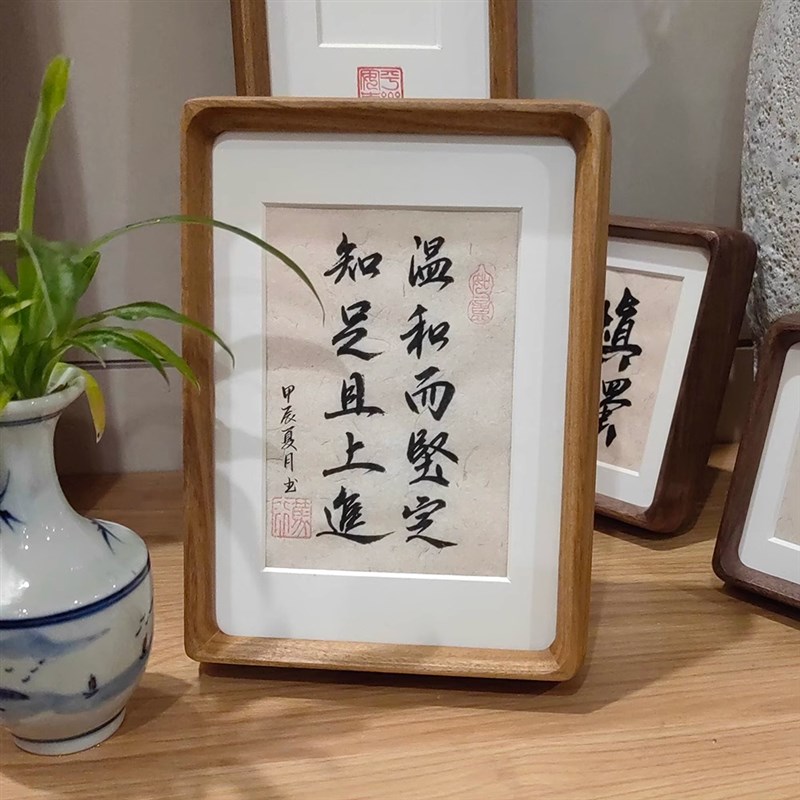 温和而堅定
知足且上進
甲辰夏月书